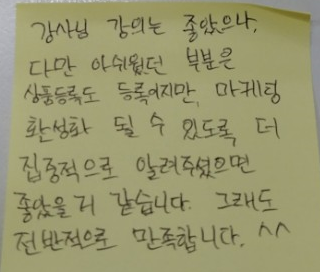 강사님 강의는 좋았으나,
다만 아쉬웠던 부분은
상품등록도 등록이지만, 마케팅
활성화 될 수 있도록 더
집중적으로 알려주셨으면
좋았을거 같습니다. 그래도
전반적으로 만족합니다. ^^